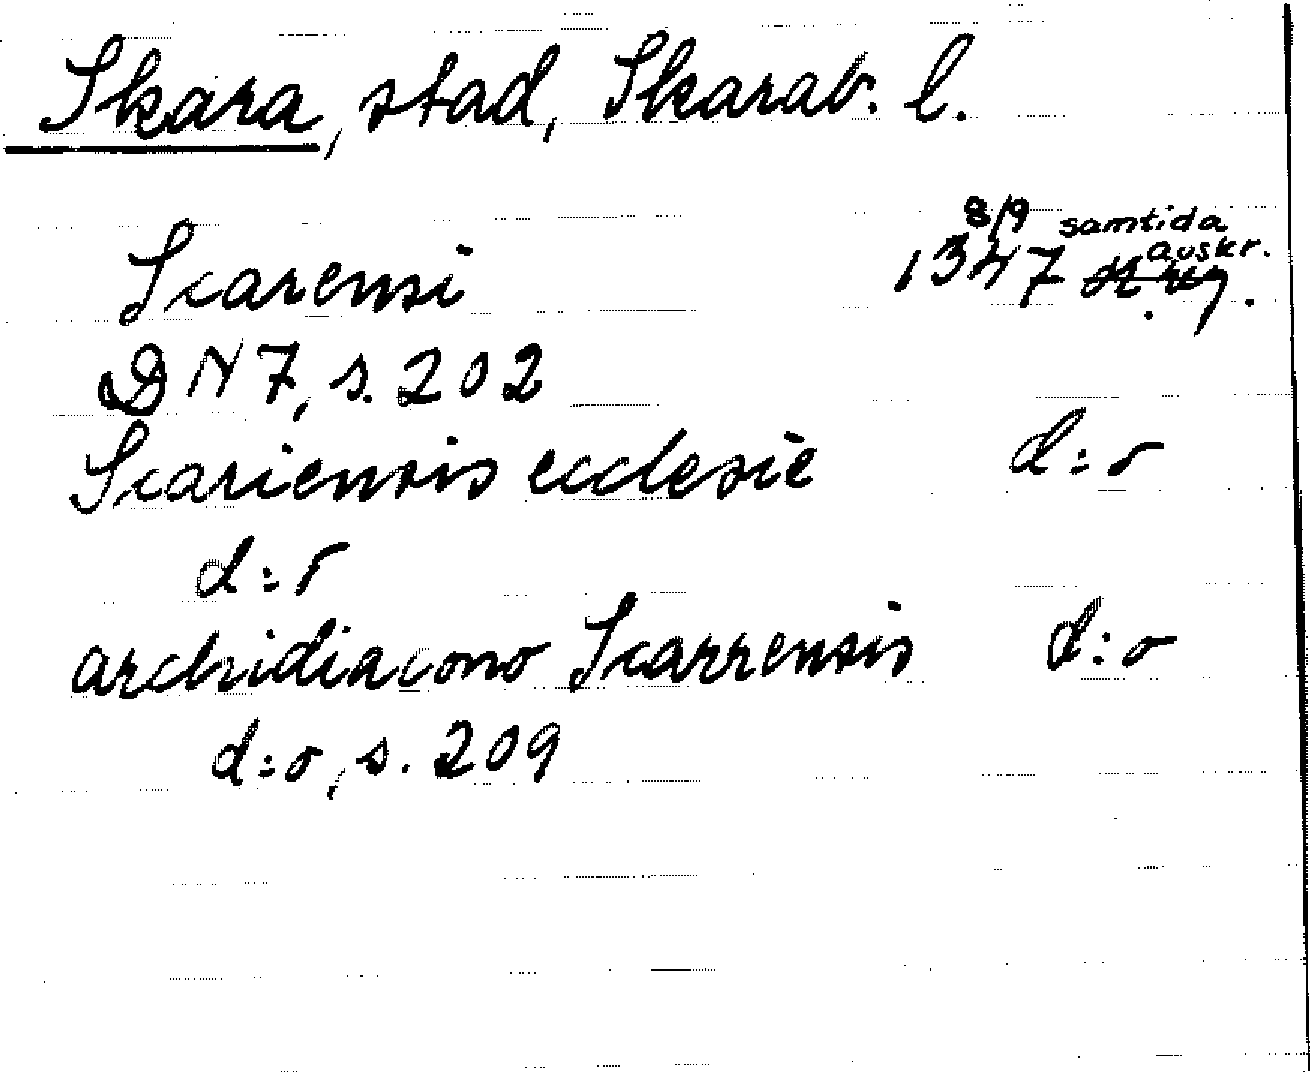 Skara, stad, Skarab. l.
Scarensi 8/9 1347 samtida avskr.
DN 7, s. 202
Scariensis ecclesie d:o
d:o
archidiacono Scarrensis d:o
d:o, s. 209